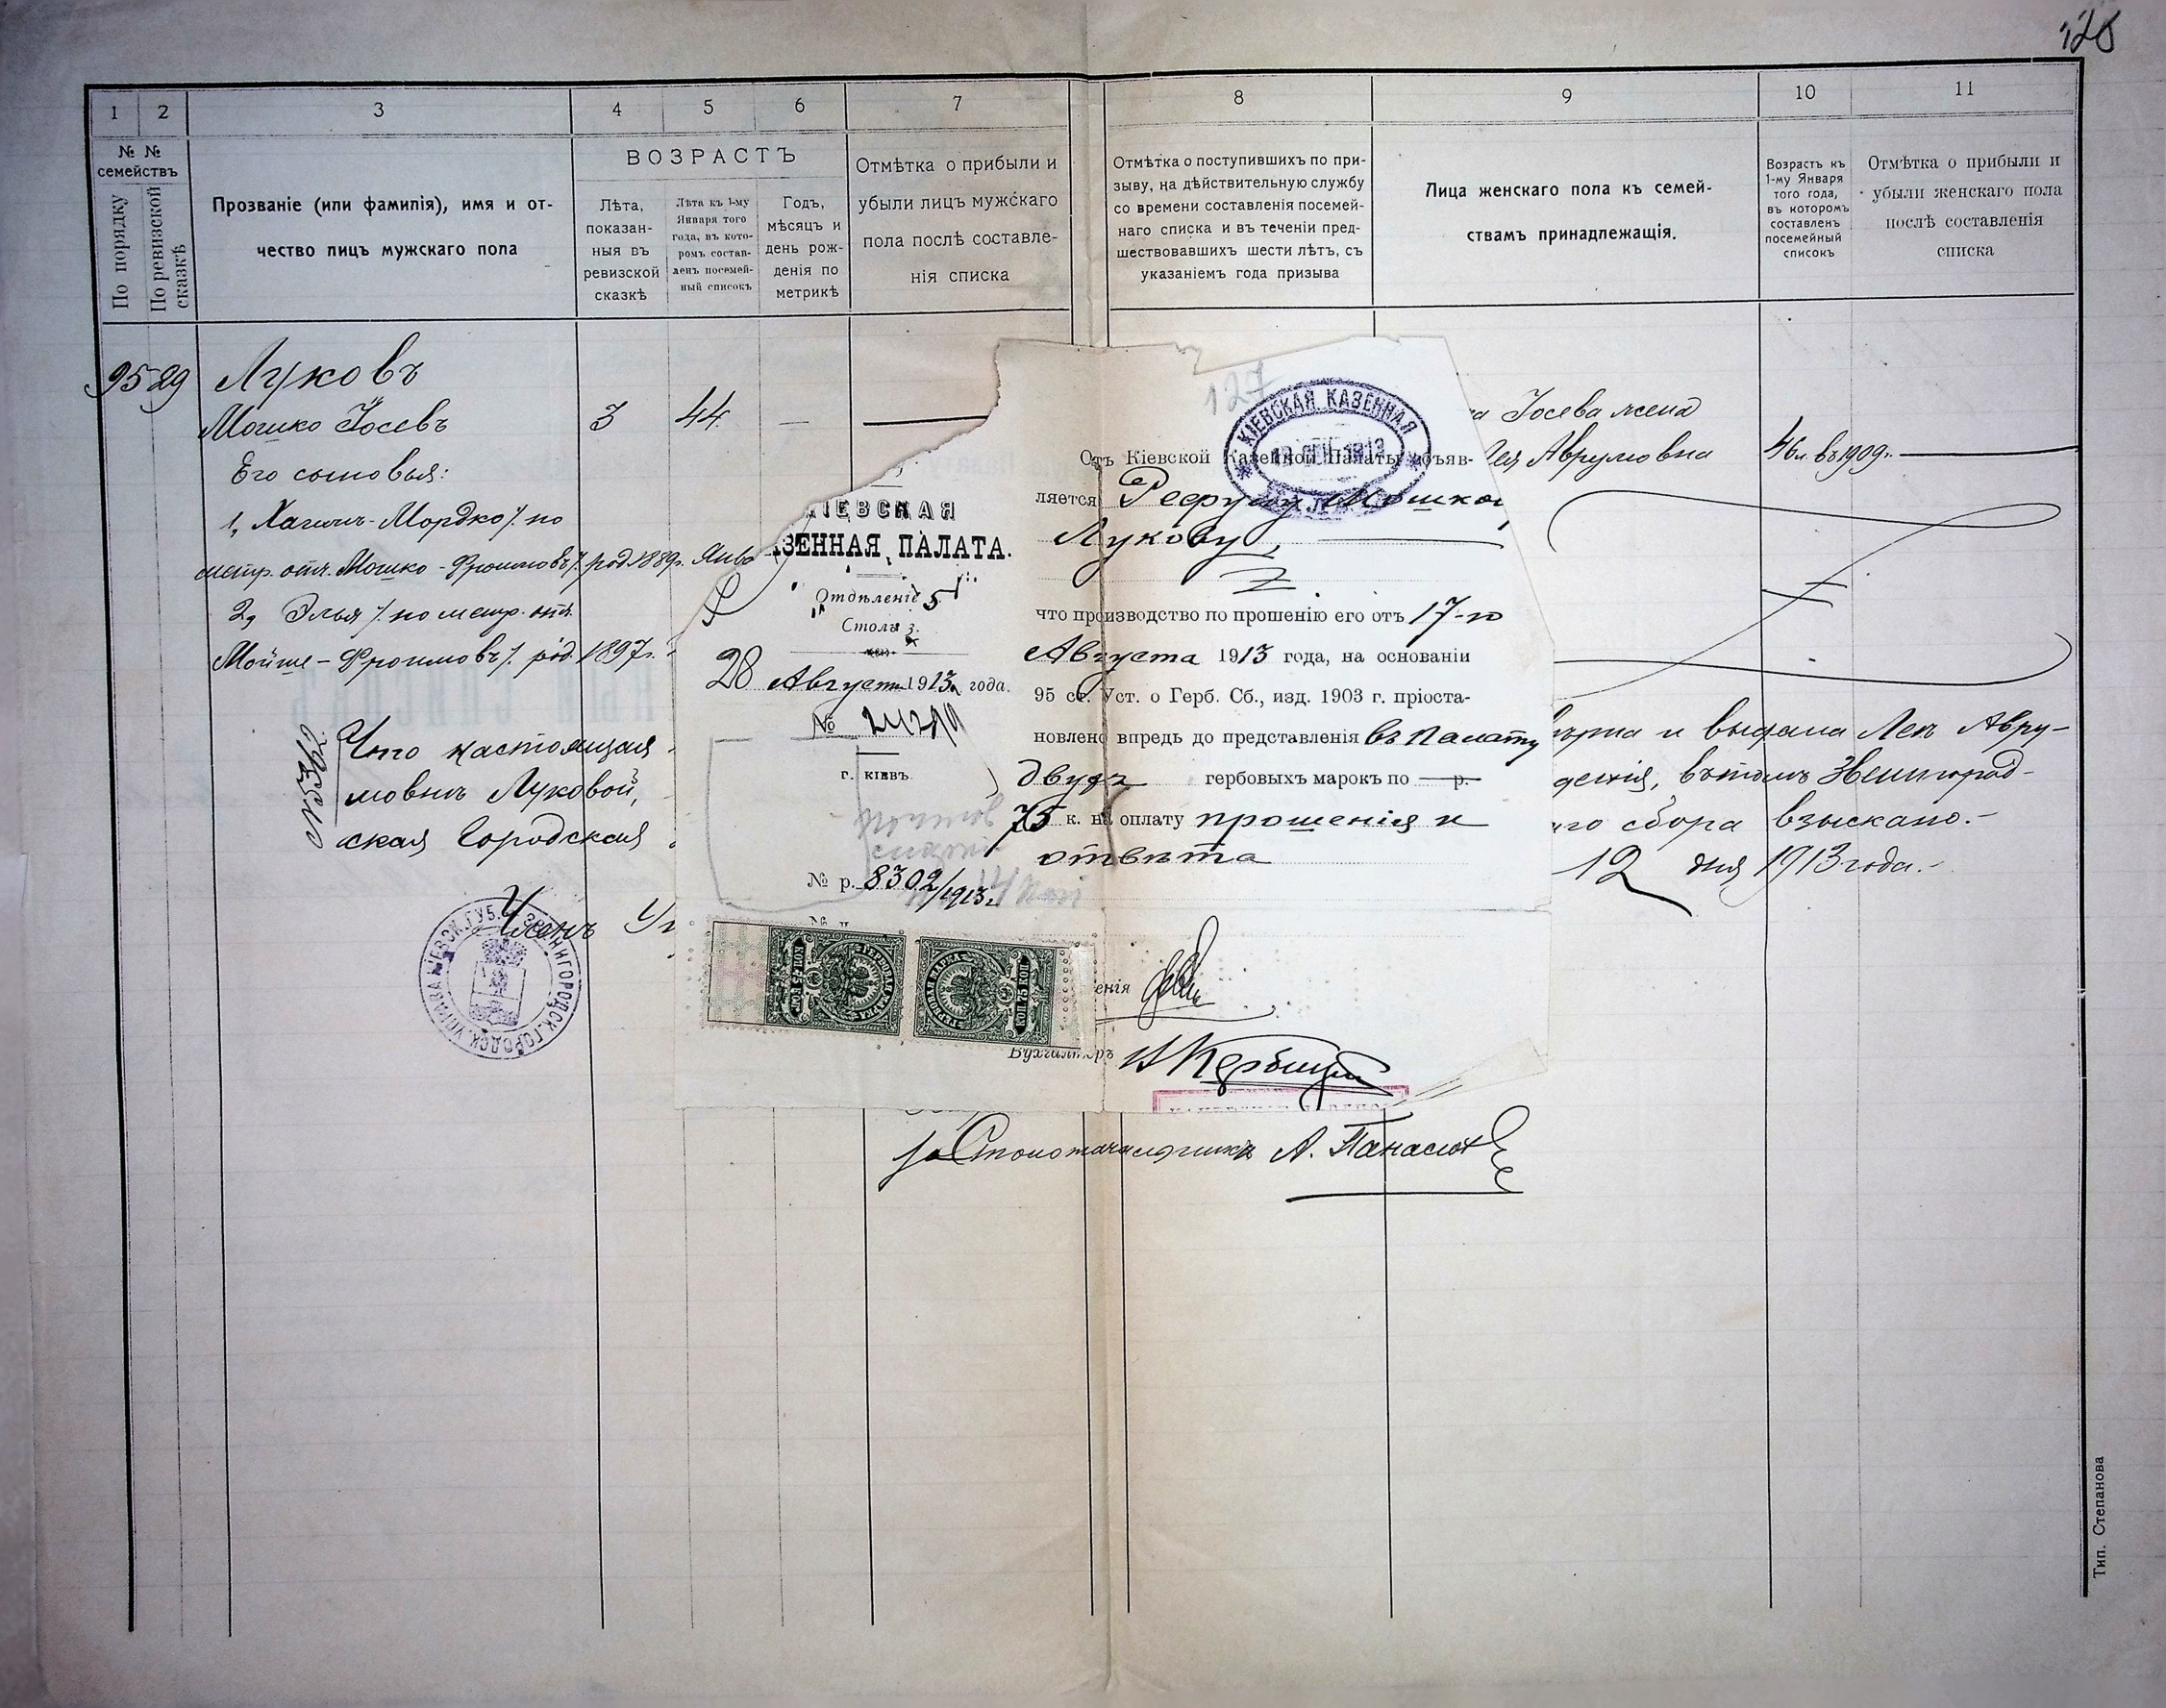 128
1 2 3 4 5 6 7 8 9 10 11
№ № семействъ
По порядку
По ревизской сказкѣ
Прозваніе (или фамилія), имя и от-
чество лицъ мужскаго пола
ВОЗРАСТЪ
Лѣта,
показан-
ныя въ
ревизской
сказкѣ
Лѣта къ 1-му
Января того
года, въ кото-
ромъ состав-
ленъ посемей-
ный списокъ
Годъ,
мѣсяцъ и
день рож-
денія по
метрикѣ
Отмѣтка о прибыли и
убыли лицъ мужскаго
пола послѣ составле-
нія списка
Отмѣтка о поступившихъ по при-
зыву, на дѣйствительную службу
со времени составленія посемей-
наго списка и въ теченіи пред-
шествовавшихъ шести лѣтъ, съ
указаніемъ года призыва
Лица женскаго пола къ семей-
ствамъ принадлежащія.
Возрастъ къ
1-му Января
того года,
въ которомъ
составленъ
посемейный
списокъ
Отмѣтка о прибыли и
убыли женскаго пола
послѣ составленія
списка
95 29 Луковъ
Мошко Іосевъ 3 44 —
Его сыновья:
1, Хаимъ-Мордко /. по
метр. отч. Мошко-Фроимовъ/. род. 1889г. Янва
2, Элья /. по метр. отч.
Мойше-Фроимовъ/. род. 1897г.
Іосева жена
Лея Аврумовна 46 л. въ 1909г.
№ 5362
Что настоящая
мовнѣ Луковой,
ская Городская
вѣрна и выдана Леѣ Авру-
денія, въ томъ Звенигород-
го сбора взыскано.
12 дня 1913 года.
Членъ Уп
КІЕВСК. ГУБ. ЗВЕНИГОРОДСК. ГОРОДСК. УПРАВА
За Столоначальника А. Панасюк
127
КІЕВСКАЯ КАЗЕННАЯ
1913
КІЕВСКАЯ
КАЗЕННАЯ ПАЛАТА.
Отдѣленіе 5
Столъ 3.
28 Августа 1913 года.
№
г. КІЕВЪ.
№ р. 8302/1913г.
Отъ Кіевской Казенной Палаты объяв-
ляется Рефулу Мошков
Лукову,
что производство по прошенію его отъ 17-го
Августа 1913 года, на основаніи
95 ст. Уст. о Герб. Сб., изд. 1903 г. пріоста-
новлено впредь до представленія въ Палату
двухъ гербовыхъ марокъ по — р.
75 к. на оплату прошенія и
отвѣта
енія
Бухгалтеръ
ГЕРБОВАЯ МАРКА
75 КОП.
ГЕРБОВАЯ МАРКА
75 КОП.
Тип. Степанова